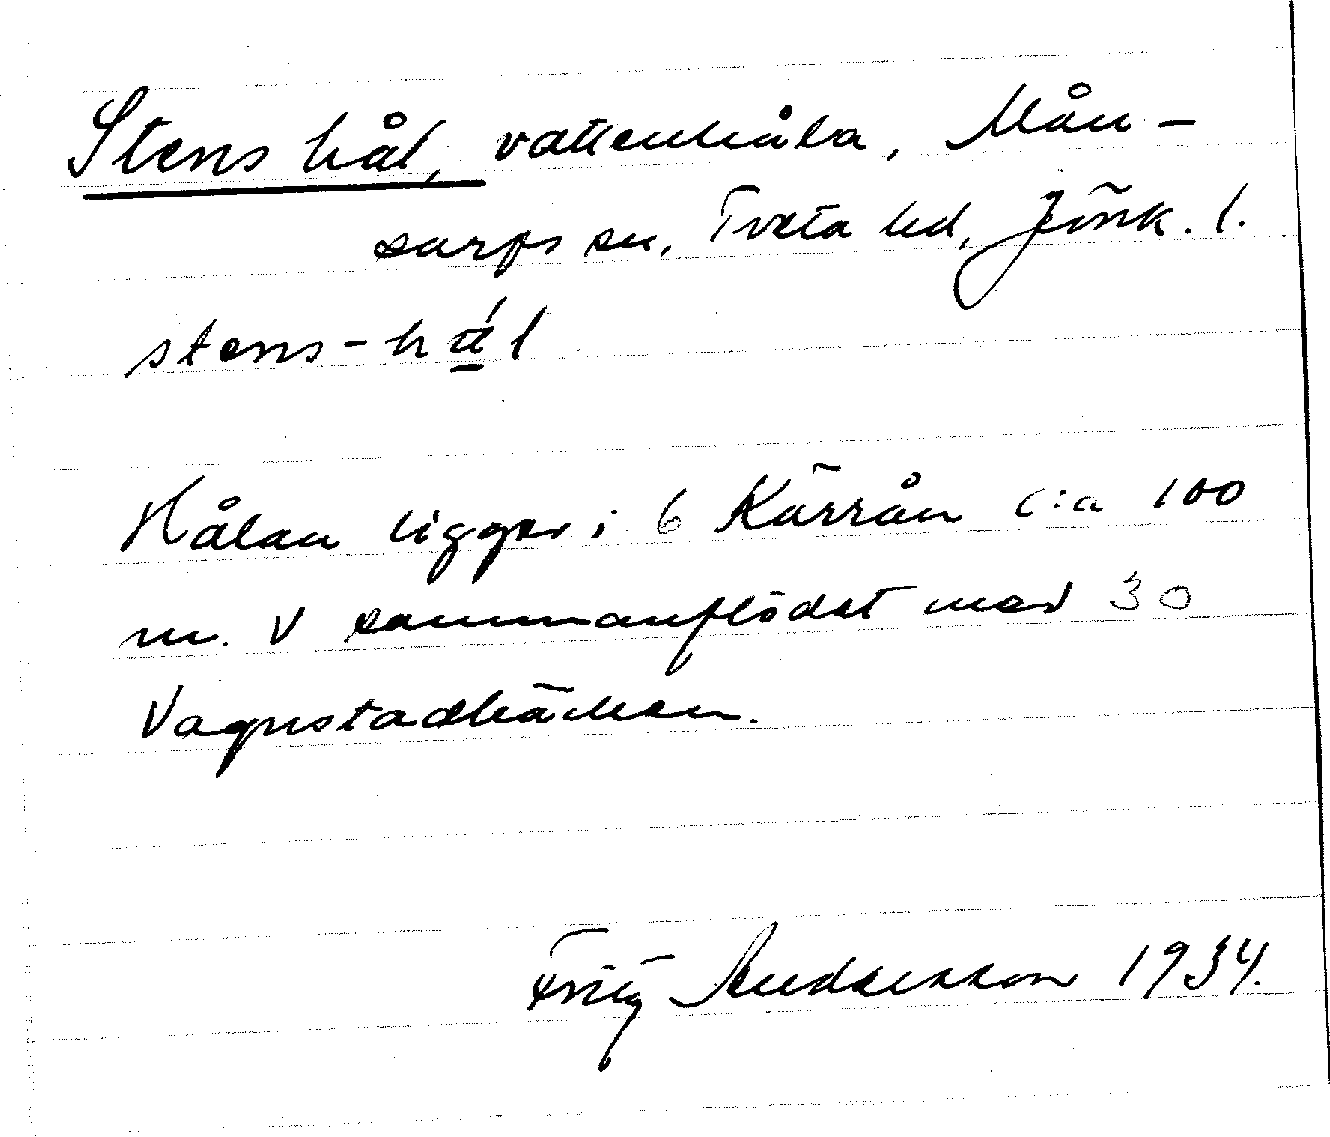 Stens hål, vattenhåla, Mån-
sarps sn, Tveta hd, Jönk. l.
stens-hál
Hålan ligger i 6 Kärrån c:a 100
m. V sammanflödet med 30
Vagnstadbäcken.
Fritz Andersson 1934.